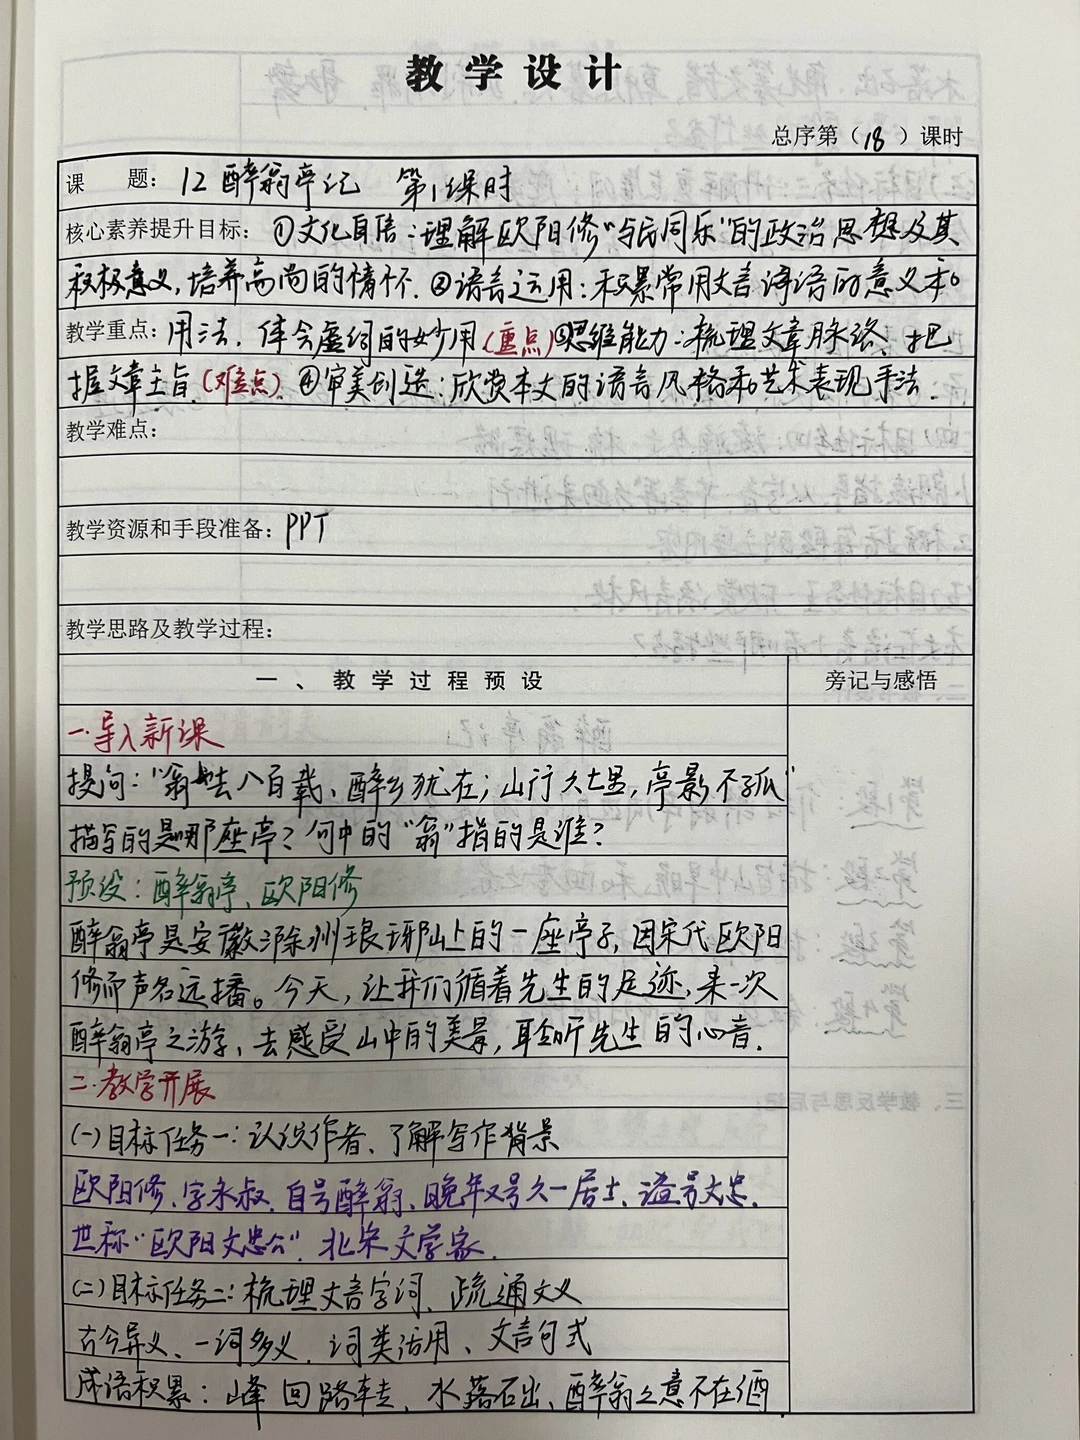 教学设计
总序第（18）课时
课 题：12 醉翁亭记 第1课时
核心素养提升目标：①文化自信：理解欧阳修“与民同乐”的政治思想及其
积极意义，培养高尚的情怀.②语言运用：积累常用文言词语的意义和
教学重点：用法，体会虚词的妙用（重点）③思维能力：梳理文章脉络、把
握文章主旨（难点）.④审美创造：欣赏本文的语言风格和艺术表现手法.
教学难点：
教学资源和手段准备：PPT
教学思路及教学过程：
一、教学过程预设 旁记与感悟
一.导入新课
提问：“翁去八百载，醉乡犹在；山行六七里，亭影不孤”
描写的是哪座亭？句中的“翁”指的是谁？
预设：醉翁亭、欧阳修
醉翁亭是安徽滁州琅琊山上的一座亭子，因宋代欧阳
修而声名远播。今天，让我们循着先生的足迹，来一次
醉翁亭之游，去感受山中的美景，聆听先生的心音.
二.教学开展
（一）目标任务一：认识作者、了解写作背景
欧阳修，字永叔，自号醉翁、晚年又号六一居士，谥号文忠.
世称“欧阳文忠公”.北宋文学家.
（二）目标任务二：梳理文言字词、疏通文义
古今异义、一词多义、词类活用、文言句式
成语积累：峰回路转、水落石出、醉翁之意不在酒